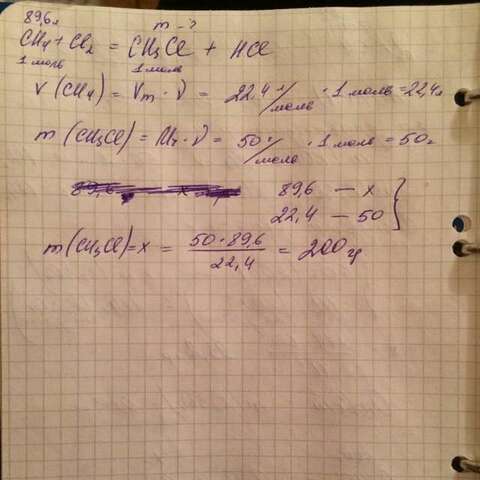 89,6л m - ?
CH₄ + Cl₂ = CH₃Cl + HCl
1 моль 1 моль
V (CH₄) = Vm · ν = 22,4 л/моль · 1 моль = 22,4л
m (CH₃Cl) = Mr · ν = 50 г/моль · 1 моль = 50г
89,6 — x
22,4 — 50
m(CH₃Cl)=x = 50·89,6/22,4 = 200 г